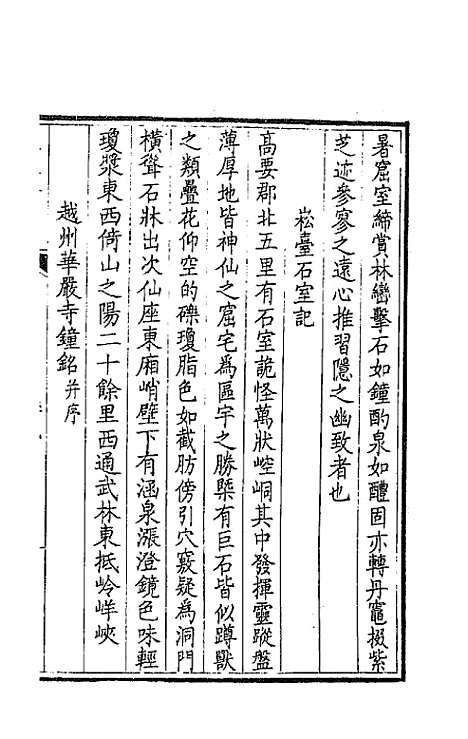 暑窟室締賞林巒擊石如鐘酌泉如醴固亦轉丹竈掇紫
芝迹參寥之遠心推習隱之幽致者也
崧臺石室記
高要郡北五里有石室詭怪萬狀崆峒其中發揮靈蹤盤
薄厚地皆神仙之窟宅爲區宇之勝槩有巨石皆似蹲獸
之類疊花仰空的礫瓊脂色如截肪傍引穴竅疑爲洞門
橫聳石牀出次仙座東廂峭壁下有涵泉漲澄鏡色味輕
瓊漿東西倚山之陽二十餘里西通武林東抵岭峰峽
越州華嚴寺鐘銘并序